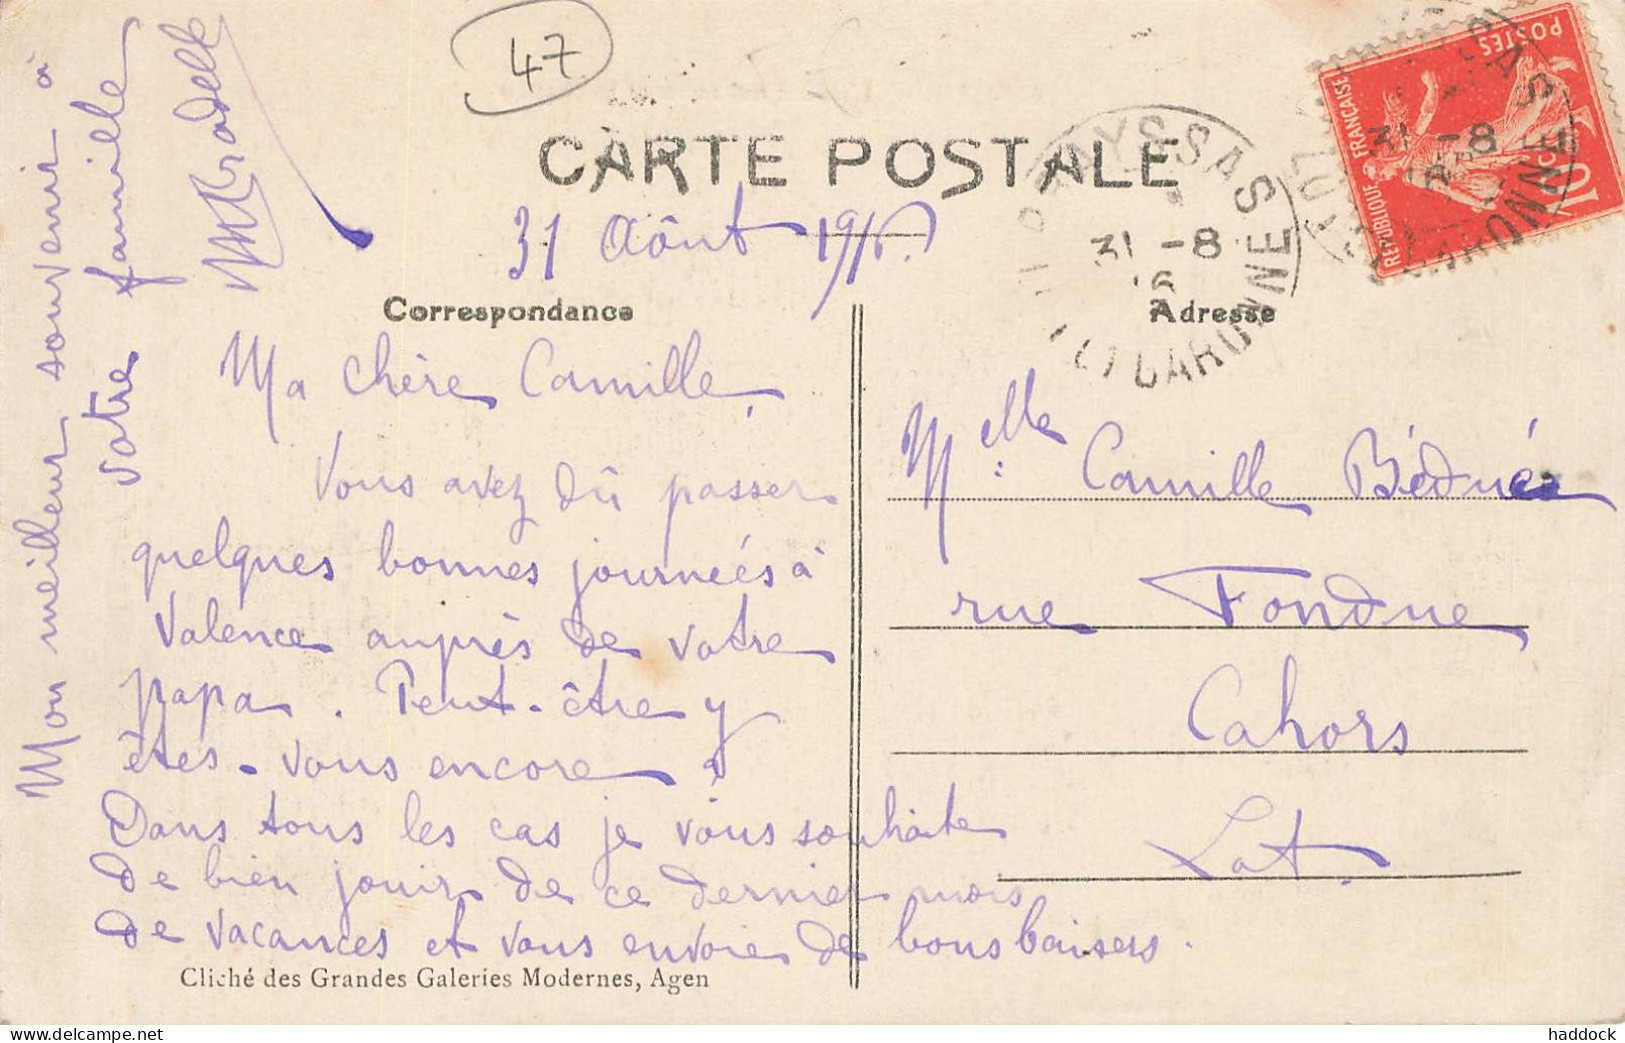 47
CARTE POSTALE
31 Août 1916
Correspondance
Adresse
Ma chère Camille,
Vous avez dû passer
quelques bonnes journées à
Valence auprès de votre
papa. Peut-être y
êtes-vous encore ?
Dans tous les cas je vous souhaite
de bien jouir de ce dernier mois
de vacances et vous envoie de bons baisers.
Mon meilleur souvenir à
votre famille
Melle Camille Bédué
rue Fondue
Cahors
Lot.
LAYSSAS
31 -8
16
LOT & GARONNE
RÉPUBLIQUE FRANÇAISE
POSTES
10c
31 -8
Cliché des Grandes Galeries Modernes, Agen
www.delcampe.net
haddock